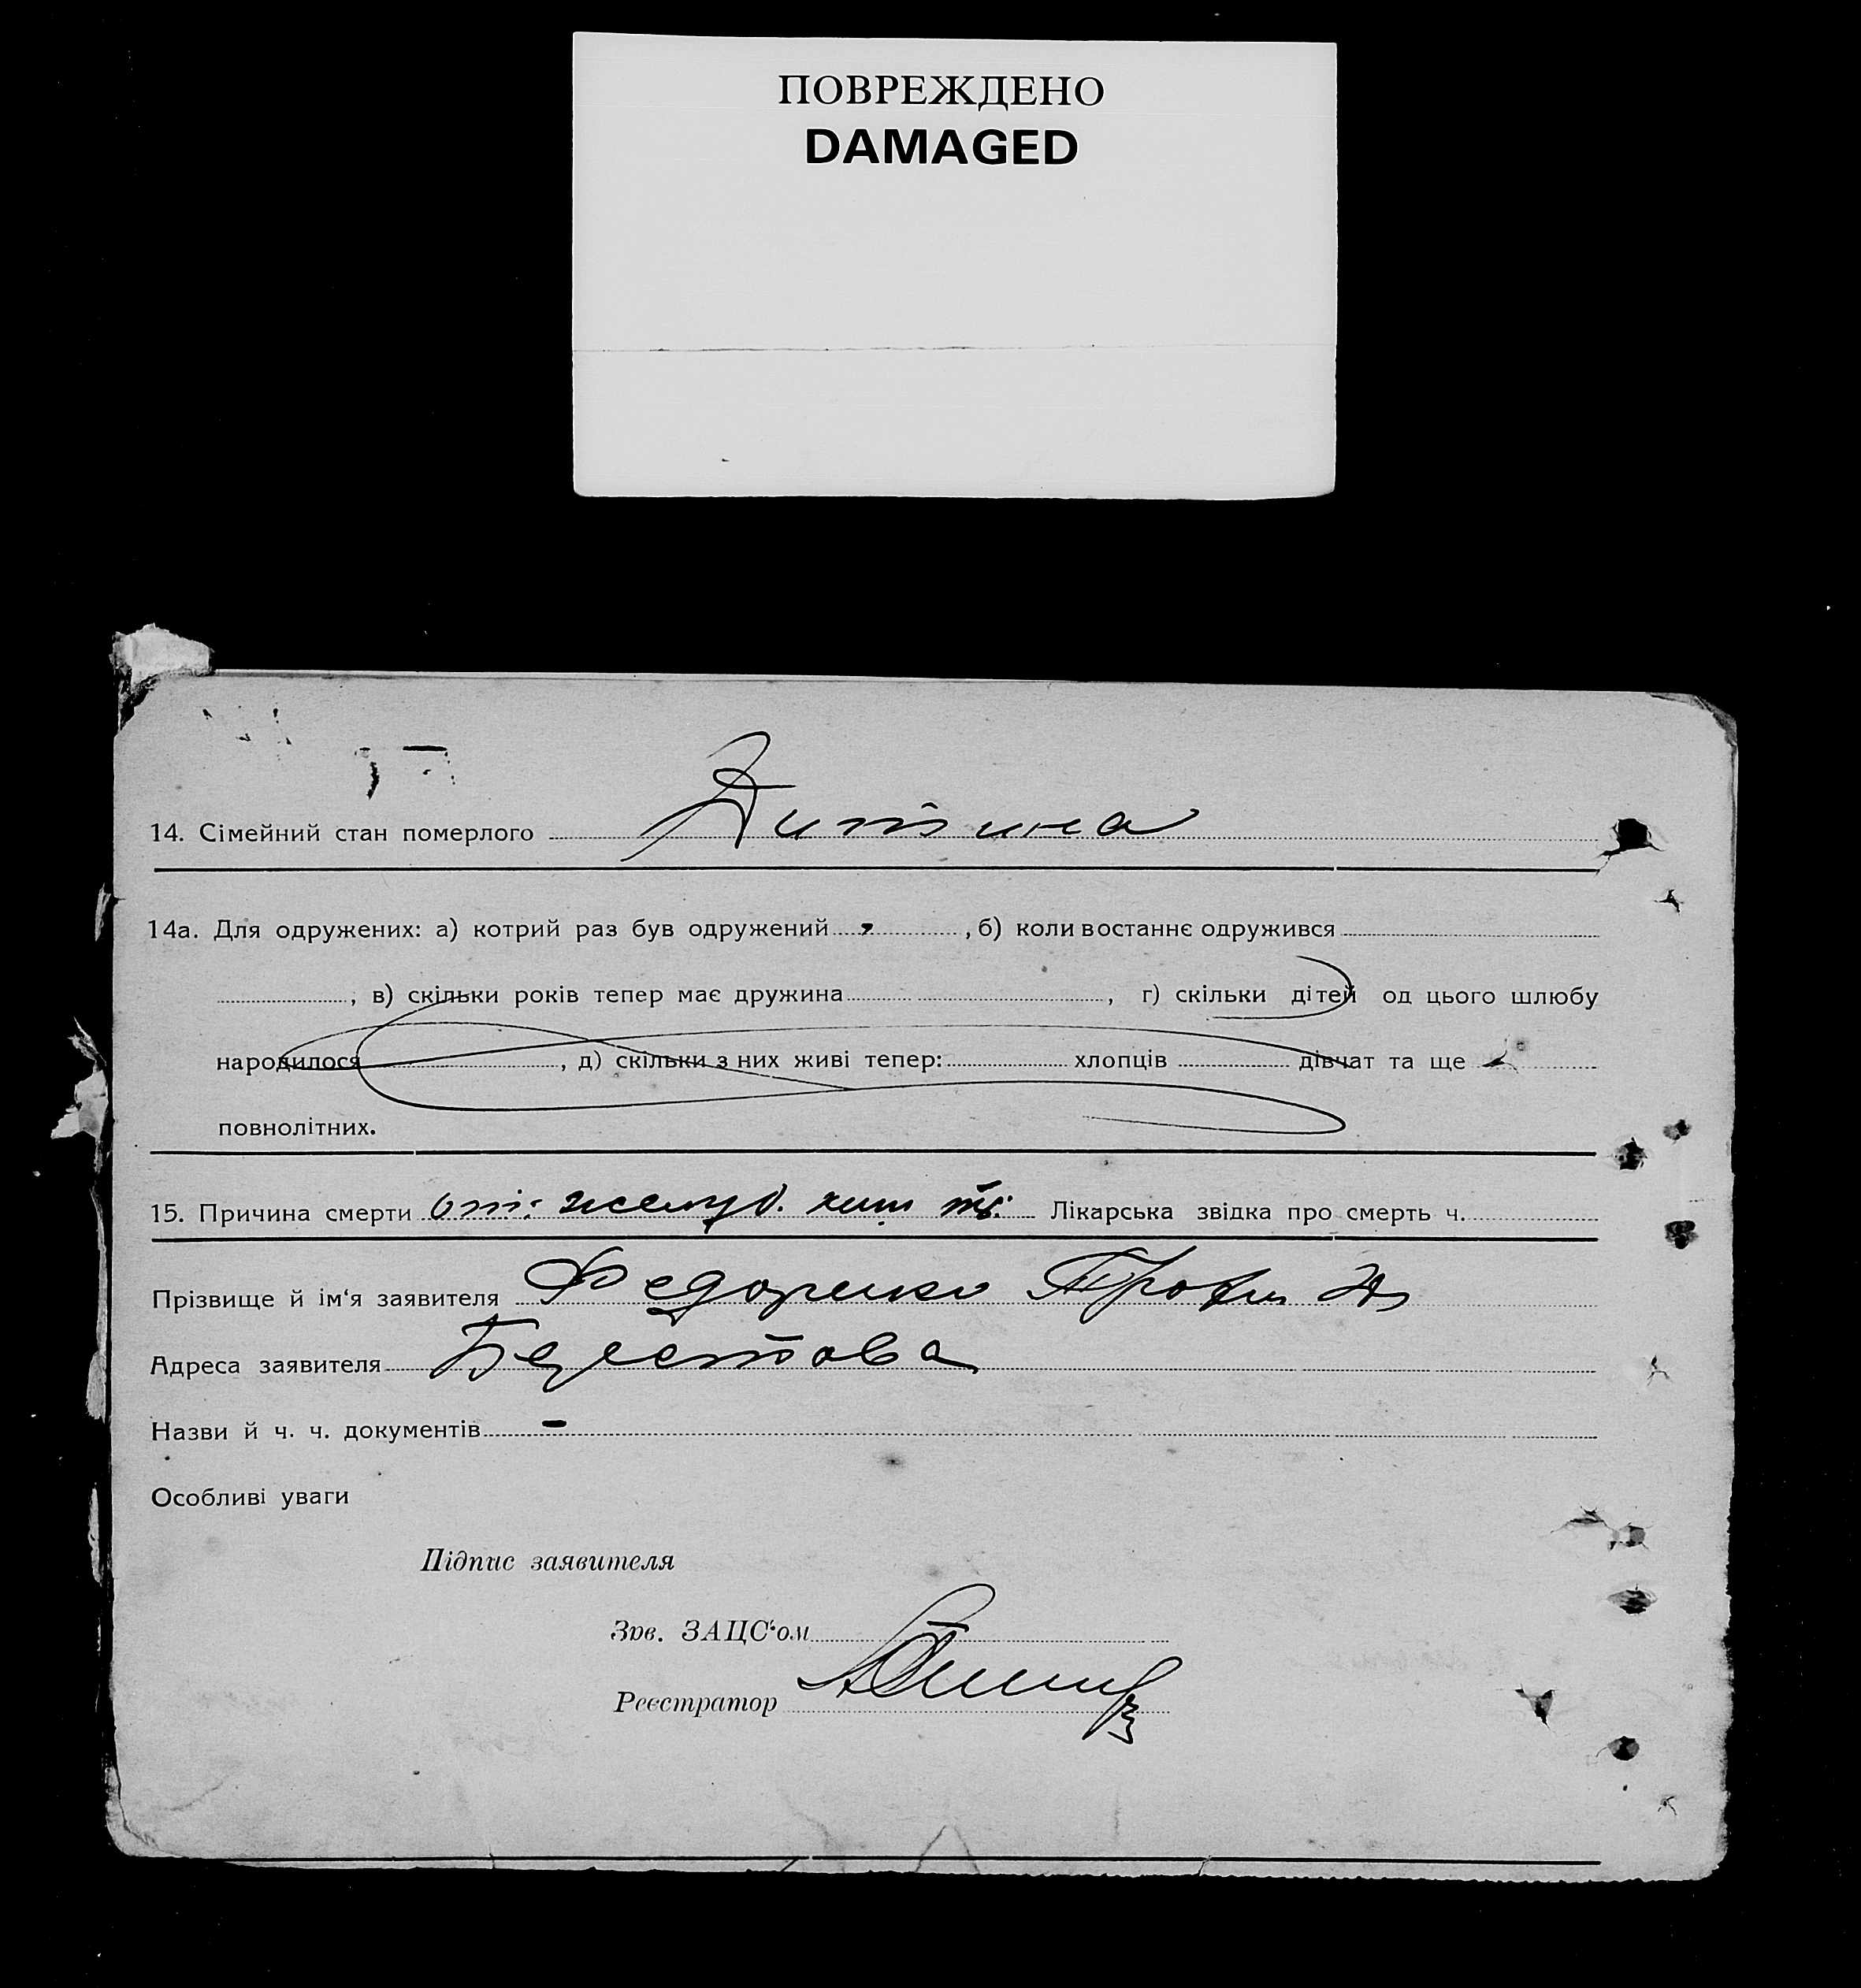 ПОВРЕЖДЕНО
DAMAGED
14. Сімейний стан померлого Дитина
14а. Для одружених: а) котрий раз був одружений , б) коли востаннє одружився
, в) скільки років тепер має дружина , г) скільки дітей од цього шлюбу
народилося , д) скільки з них живі тепер: хлопців дівчат та ще
повнолітних.
15. Причина смерти желуд. киш Лікарська звідка про смерть ч.
Прізвище й ім'я заявителя Федоренко Трофим
Адреса заявителя Берестова
Назви й ч. ч. документів -
Особливі уваги
Підпис заявителя
Зав. ЗАЦС'ом
Реєстратор